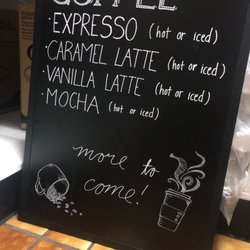 COFFEE
·EXPRESSO (hot or iced)
·CARAMEL LATTE (hot or iced)
·VANILLA LATTE (hot or iced)
·MOCHA (hot or iced)
more to
come!